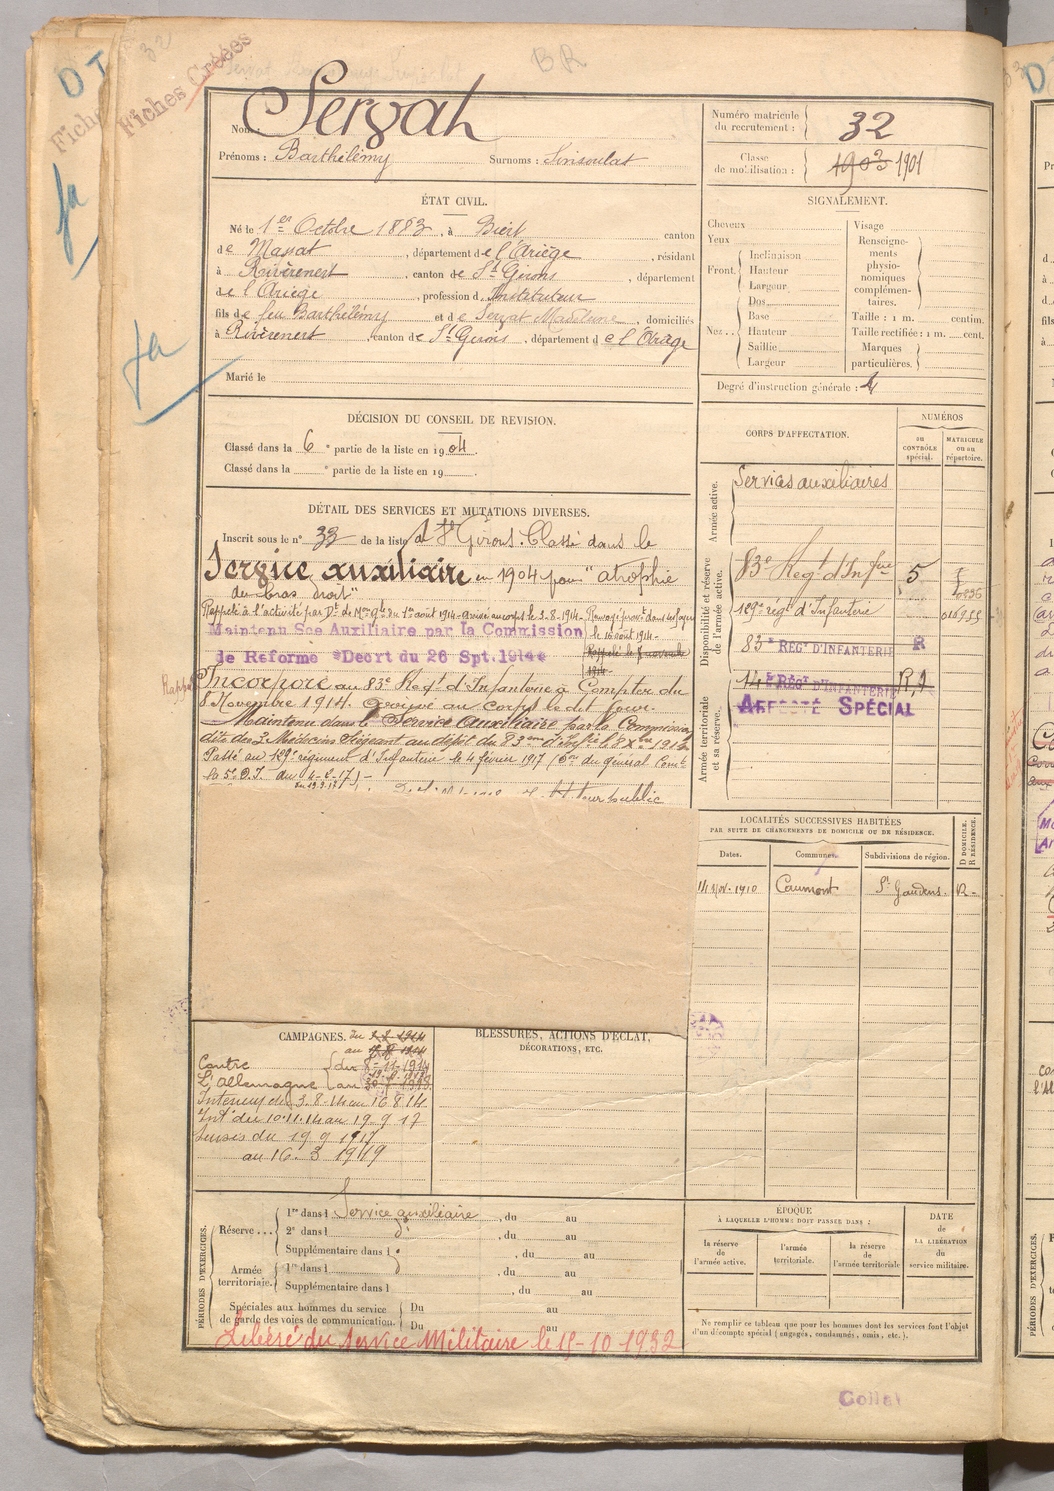 D T
32
Fiches
Fiches Créées
BR
Nom : Servat
Prénoms : Barthélémy Surnoms : Sinsoulat
Numéro matricule
du recrutement : 32
Classe
de mobilisation : 1903 1901
ÉTAT CIVIL.
Né le 1er Octobre 1883, à Biert canton
de Massat, département de l'Ariège, résidant
à Rivèrenert, canton de St Girons, département
de l'Ariège, profession d'Instituteur
fils de feu Barthélémy et de Servat Madeleine, domiciliés
à Rivèrenert, canton de St Girons, département de l'Ariège
Marié le
SIGNALEMENT.
Cheveux
Yeux
Front.
Inclinaison
Hauteur
Largeur
Dos
Nez..
Base
Hauteur
Saillie
Largeur
Visage
Renseigne-
ments
physio-
nomiques
complémen-
taires.
Taille : 1 m. centim.
Taille rectifiée : 1 m. cent.
Marques
particulières.
Degré d'instruction générale : 4
DÉCISION DU CONSEIL DE REVISION.
Classé dans la 6e partie de la liste en 1904.
Classé dans la e partie de la liste en 19 .
DÉTAIL DES SERVICES ET MUTATIONS DIVERSES.
Inscrit sous le n° 33 de la liste d St Girons. Classé dans le
Service auxiliaire en 1904 pour "atrophie
du bras droit"
Rappelé à l'activité par Dt de Mon Gle du 1er août 1914. Arrivé au corps le 3.8.1914. Renvoyé provt dans ses foyers
le 16 août 1914.
Maintenu Sce Auxiliaire par la Commission
de Reforme Decrt du 26 Spt. 1914
Rappelé le 8 novembre
1914
Incorporé au 83e Regt d'Infanterie à Compter du
8 Novembre 1914. Arrivé au corps le dit jour.
Maintenu dans le Service Auxiliaire par la Commission
dite des 3 Médecins Siégeant au dépôt du 83eme d'Infie le 8 Xbre 191
Passé au 129e régiment d'Infanterie le 4 février 1917 (Don du général Comt
la 5e D.I. du 4-2-17)
CORPS D'AFFECTATION.
NUMÉROS
au
CONTRÔLE
spécial.
MATRICULE
ou au
répertoire.
Armée active.
Services auxiliaires
Disponibilité et réserve
de l'armée active.
83e Regt d'Infrie 5
129e régt d'Infanterie 016955
83e REGT D'INFANTERIE R
Armée territoriale
et sa réserve.
14e REGT D'INFANTERIE RA
AFFECTÉ SPÉCIAL
LOCALITÉS SUCCESSIVES HABITÉES
PAR SUITE DE CHANGEMENTS DE DOMICILE OU DE RÉSIDENCE.
Dates. Communes. Subdivisions de région. D DOMICILE. R RÉSIDENCE.
14 Nov. 1910 Caumont St Gaudens. R.
CAMPAGNES. du 3 8 1914
au 16 8 1914
Contre du 8-11-1914
L'Allemagne au
Intérieur du 3.8.14 au 16 8 14
Intr du 10.11.14 au 19.9.17
Sursis du 19 9 1917
au 16. 3 1919
BLESSURES, ACTIONS D'ÉCLAT,
DÉCORATIONS, ETC.
PÉRIODES D'EXERCICES.
Réserve...
1re dans l Service auxiliaire, du au
2e dans l d°, du au
Supplémentaire dans l, du au
Armée
territoriale.
1re dans l, du au
Supplémentaire dans l, du au
Spéciales aux hommes du service
de gardes des voies de communication.
Du au
Du au
Libéré du Service Militaire le 15-10-1932
ÉPOQUE
À LAQUELLE L'HOMME DOIT PASSER DANS :
la réserve
de
l'armée active.
l'armée
territoriale.
la réserve
de
l'armée territoriale
DATE
de
LA LIBÉRATION
du
service militaire.
Ne remplir ce tableau que pour les hommes dont les services font l'objet
d'un décompte spécial (engagés, condamnés, omis, etc.).